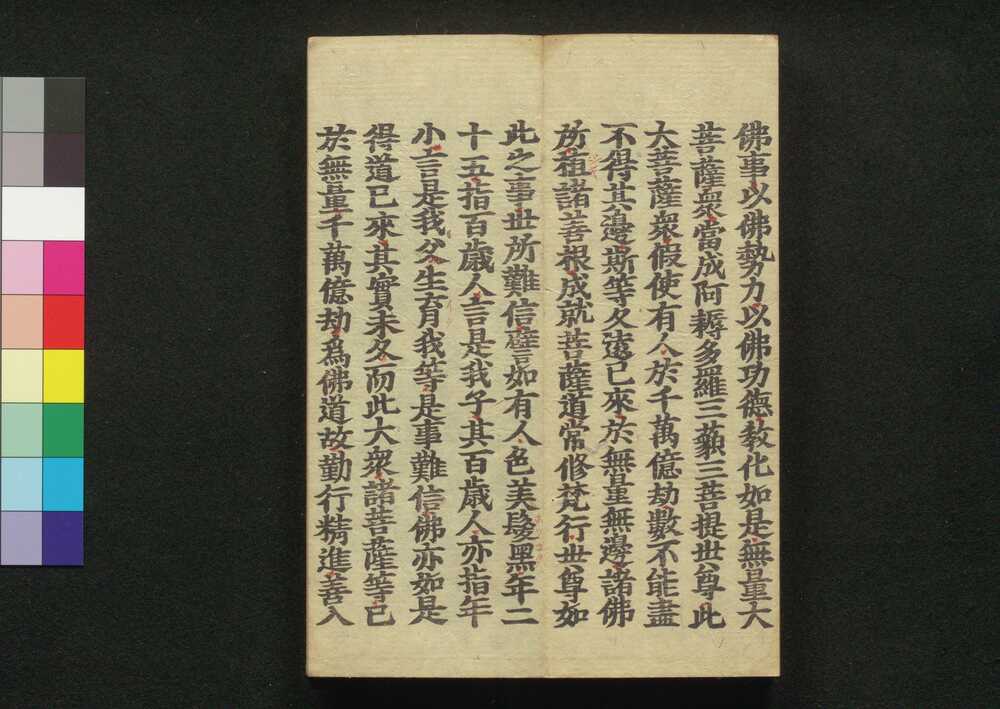 佛事以佛勢力以佛功德教化如是無量大
菩薩衆當成阿耨多羅三藐三菩提世尊此
大菩薩衆假使有人於千萬億劫數不能盡
不得其邊斯等久遠已來於無量無邊諸佛
所植諸善根成就菩薩道常修梵行世尊如
此之事世所難信譬如有人色美髮黑年二
十五指百歲人言是我子其百歲人亦指年
少言是我父生育我等是事難信佛亦如是
得道已來其實未久而此大衆諸菩薩等已
於無量千萬億劫爲佛道故勤行精進善入